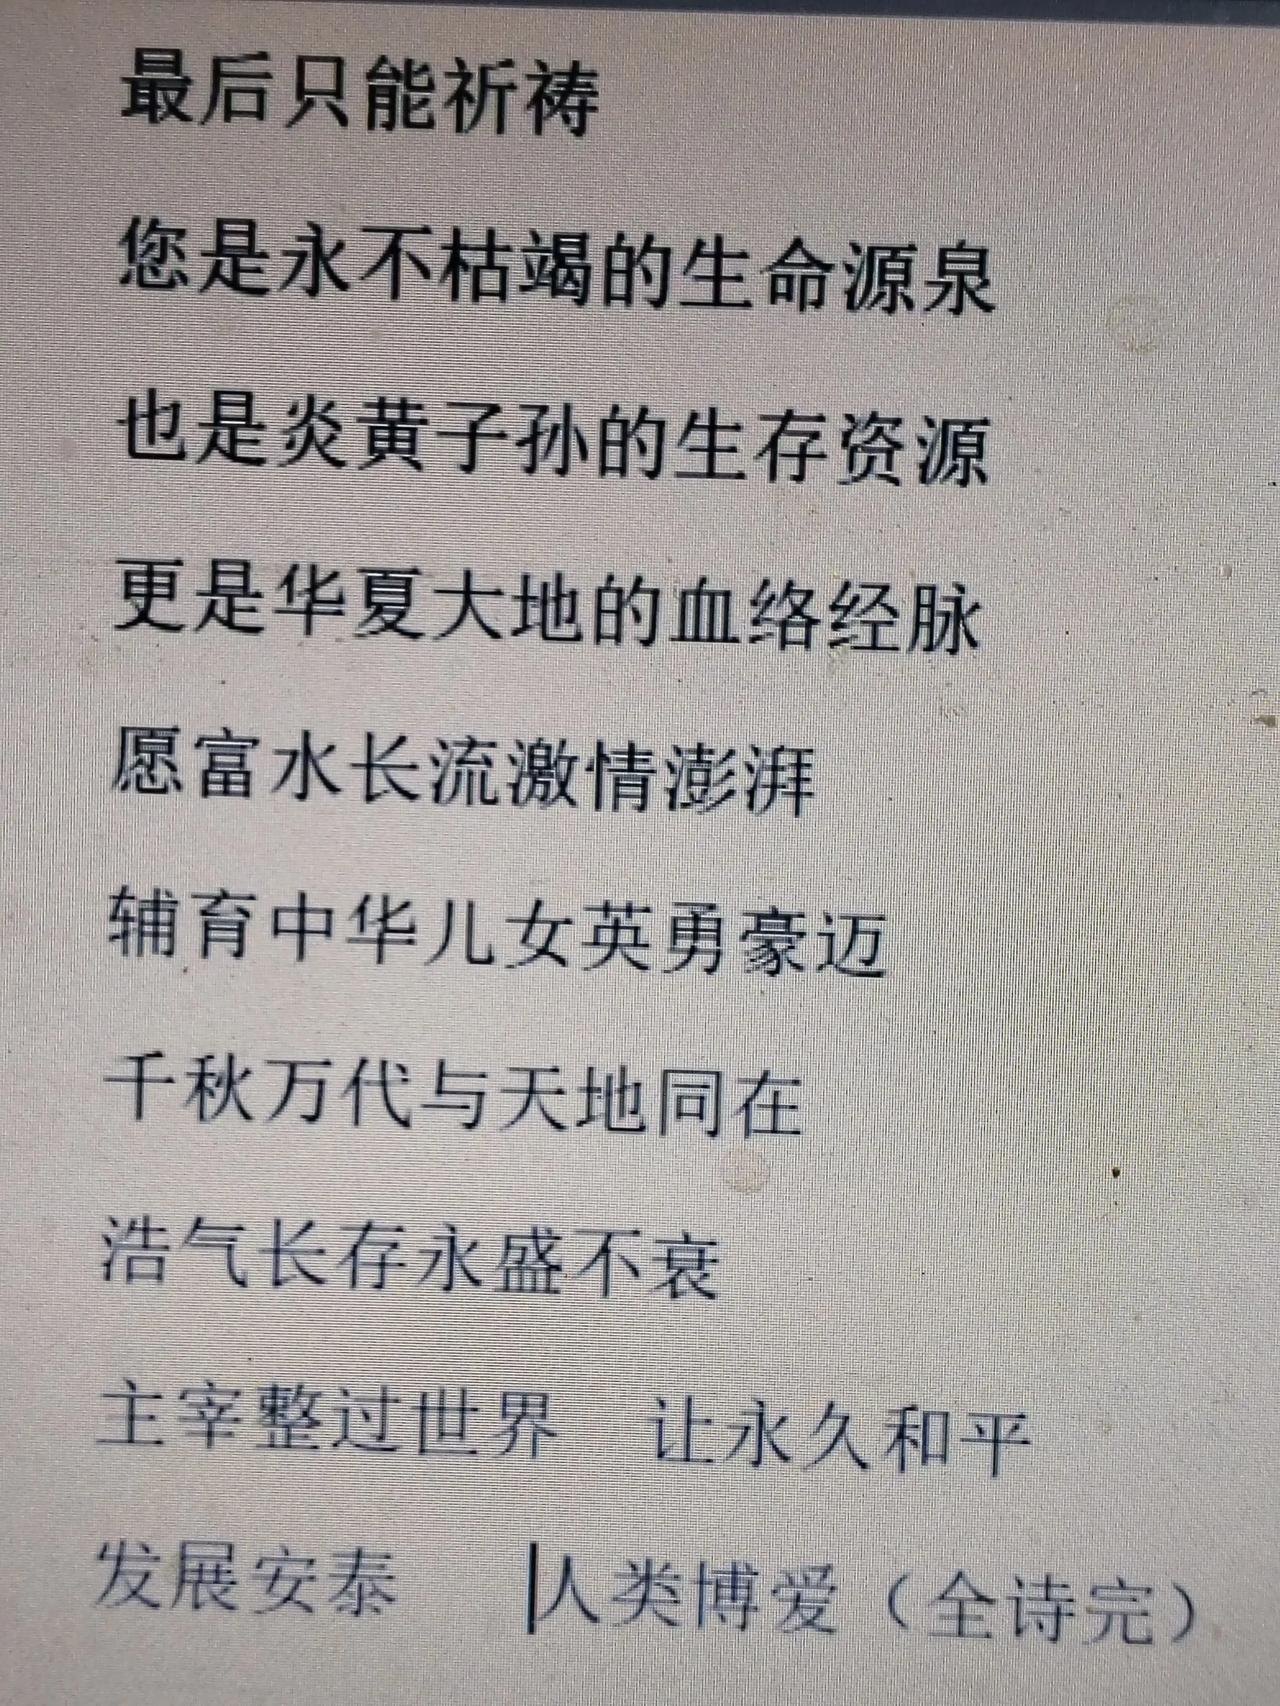 最后只能祈祷
您是永不枯竭的生命源泉
也是炎黄子孙的生存资源
更是华夏大地的血络经脉
愿富水长流激情澎湃
辅育中华儿女英勇豪迈
千秋万代与天地同在
浩气长存永盛不衰
主宰整过世界　让永久和平
发展安泰　人类博爱（全诗完）